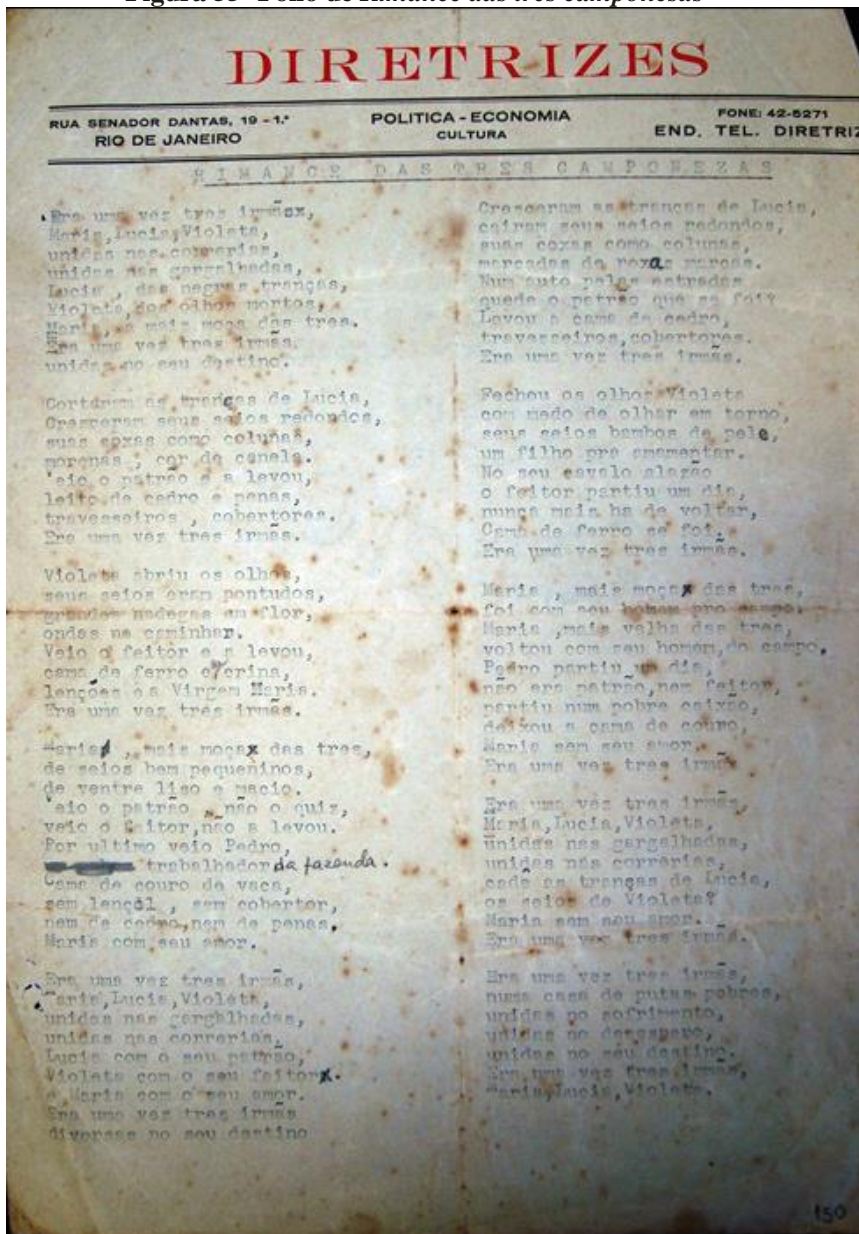 Figura 33- Fólio de Rimance das três camponesas
DIRETRIZES
RUA SENADOR DANTAS, 19 - 1.º
RIO DE JANEIRO
POLITICA - ECONOMIA
CULTURA
FONE: 42-5271
END. TEL. DIRETRIZ
RIMANCE DAS TRES CAMPONEZAS
Era uma vez tres irmãsx,
Maria,Lucia,Violeta,
unidas nas correrias,
unidas nas gargalhadas,
Lucia , das negras tranças,
Violeta,dos olhos mortos,
Maria, a mais moça das tres.
Era uma vez tres irmãs
unidas no seu destino.
Cortaram as tranças de Lucia,
Cresceram seus seios redondos,
suas coxas como colunas,
morenas , cor de canela.
'eio o patrão e a levou,
leito de cedro e penas,
travesseiros , cobertores.
Era uma vez tres irmãs.
Violeta abriu os olhos,
seus seios eram pontudos,
grandes nadegas em flor,
ondas no caminhar.
Veio o feitor e a levou,
cama de ferro e crina,
lenções e a Virgem Maria.
Era uma vez tres irmãs.
Maria , mais moçax das tres,
de seios bem pequeninos,
de ventre liso e macio.
'eio o patrão , não o quiz,
veio o feitor,não a levou.
Por ultimo veio Pedro,
trabalhador da fazenda.
Cama de couro de vaca,
sem lençól , sem cobertor,
nem de cedro,nem de penas,
Maria com seu amor.
Era uma vez tres irmãs,
Maria,Lucia,Violeta,
unidas nas gargalhadas,
unidas nas correrias,
Lucia com o seu patrão,
Violeta com o seu feitorx.
e Maria com o seu amor.
Era uma vez tres irmãs
diversas no seu destino
Cresceram as tranças de Lucia,
cairam seus seios redondos,
suas coxas como colunas,
marcadas de roxas marcas.
Num auto pelas estradas
quede o patrão que se foi?
Levou a cama de cedro,
travesseiros,cobertores.
Era uma vez tres irmãs.
Fechou os olhos Violeta
com medo de olhar em torno,
seus seios bambos de pele,
um filho pra amamentar.
No seu cavalo alazão
o feitor partiu um dia,
nunca mais ha de voltar,
Cama de ferro se foi.
Era uma vez tres irmãs.
Maria , mais moçax das tres,
foi com seu homem pro campo.
Maria ,mais velha das tres,
voltou com seu homem,do campo,
Pedro partiu um dia,
não era patrão,nem feitor,
partiu num pobre caixão,
deixou a cama de couro,
Maria sem seu amor.
Era uma vez tres irmãs
Era uma vez tres irmãs,
Maria,Lucia,Violeta,
unidas nas gargalhadas,
unidas nas correrias,
cade as tranças de Lucia,
os seios de Violeta?
Maria sem seu amor.
Era uma vez tres irmãs.
Era uma vez tres irmãs,
numa casa de putas pobres,
unidas no sofrimento,
unidas no desespero,
unidas no seu destino.
Era uma vez tres irmãs,
Maria,Lucia,Violeta.
150